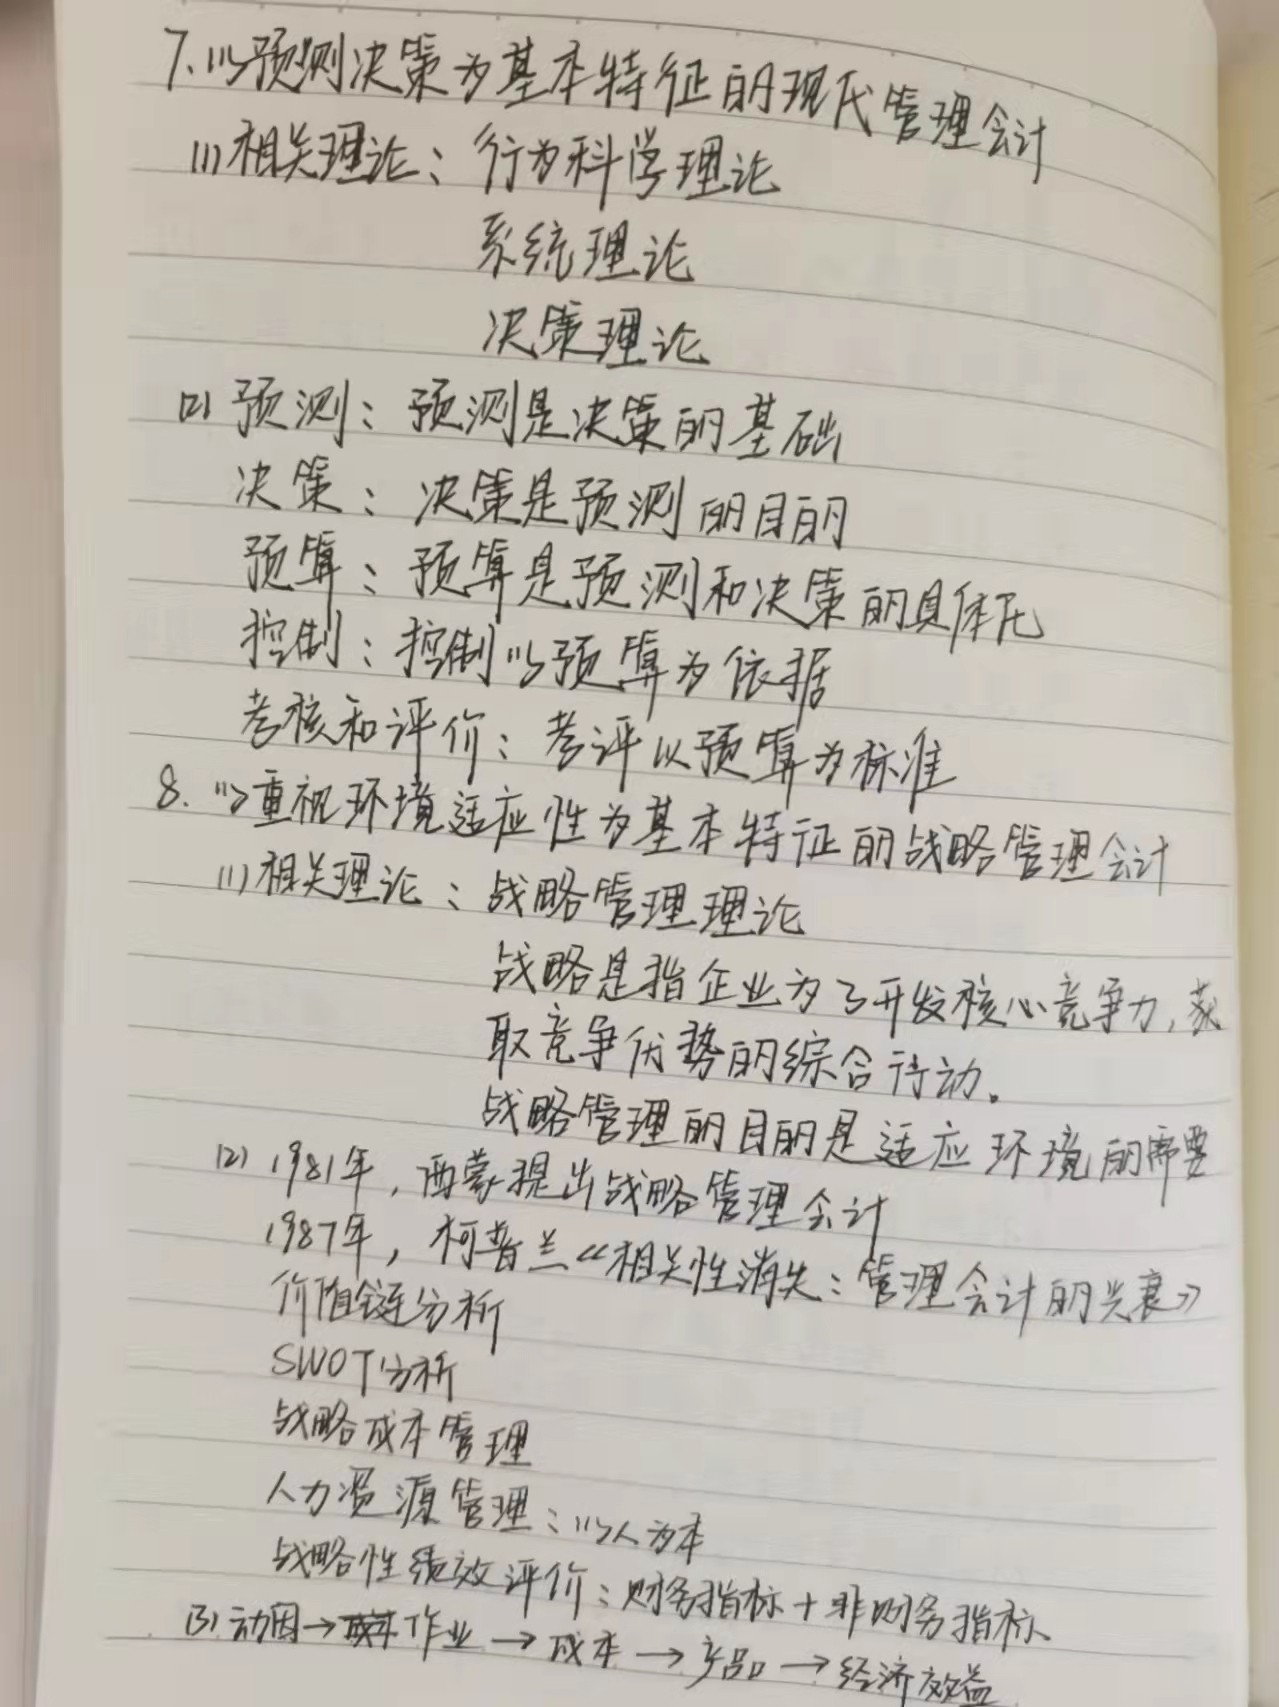 7.以预测决策为基本特征的现代管理会计
(1)相关理论：行为科学理论
系统理论
决策理论
(2)预测：预测是决策的基础
决策：决策是预测的目的
预算：预算是预测和决策的具体化
控制：控制以预算为依据
考核和评价：考评以预算为标准
8.以重视环境适应性为基本特征的战略管理会计
(1)相关理论：战略管理理论
战略是指企业为了开发核心竞争力,获
取竞争优势的综合行动。
战略管理的目的是适应环境的需要
(2)1981年,西蒙提出战略管理会计
1987年,柯普兰《相关性消失：管理会计的兴衰》
价值链分析
SWOT分析
战略成本管理
人力资源管理：以人为本
战略性绩效评价：财务指标+非财务指标
(3)动因→作业→成本→产品→经济效益